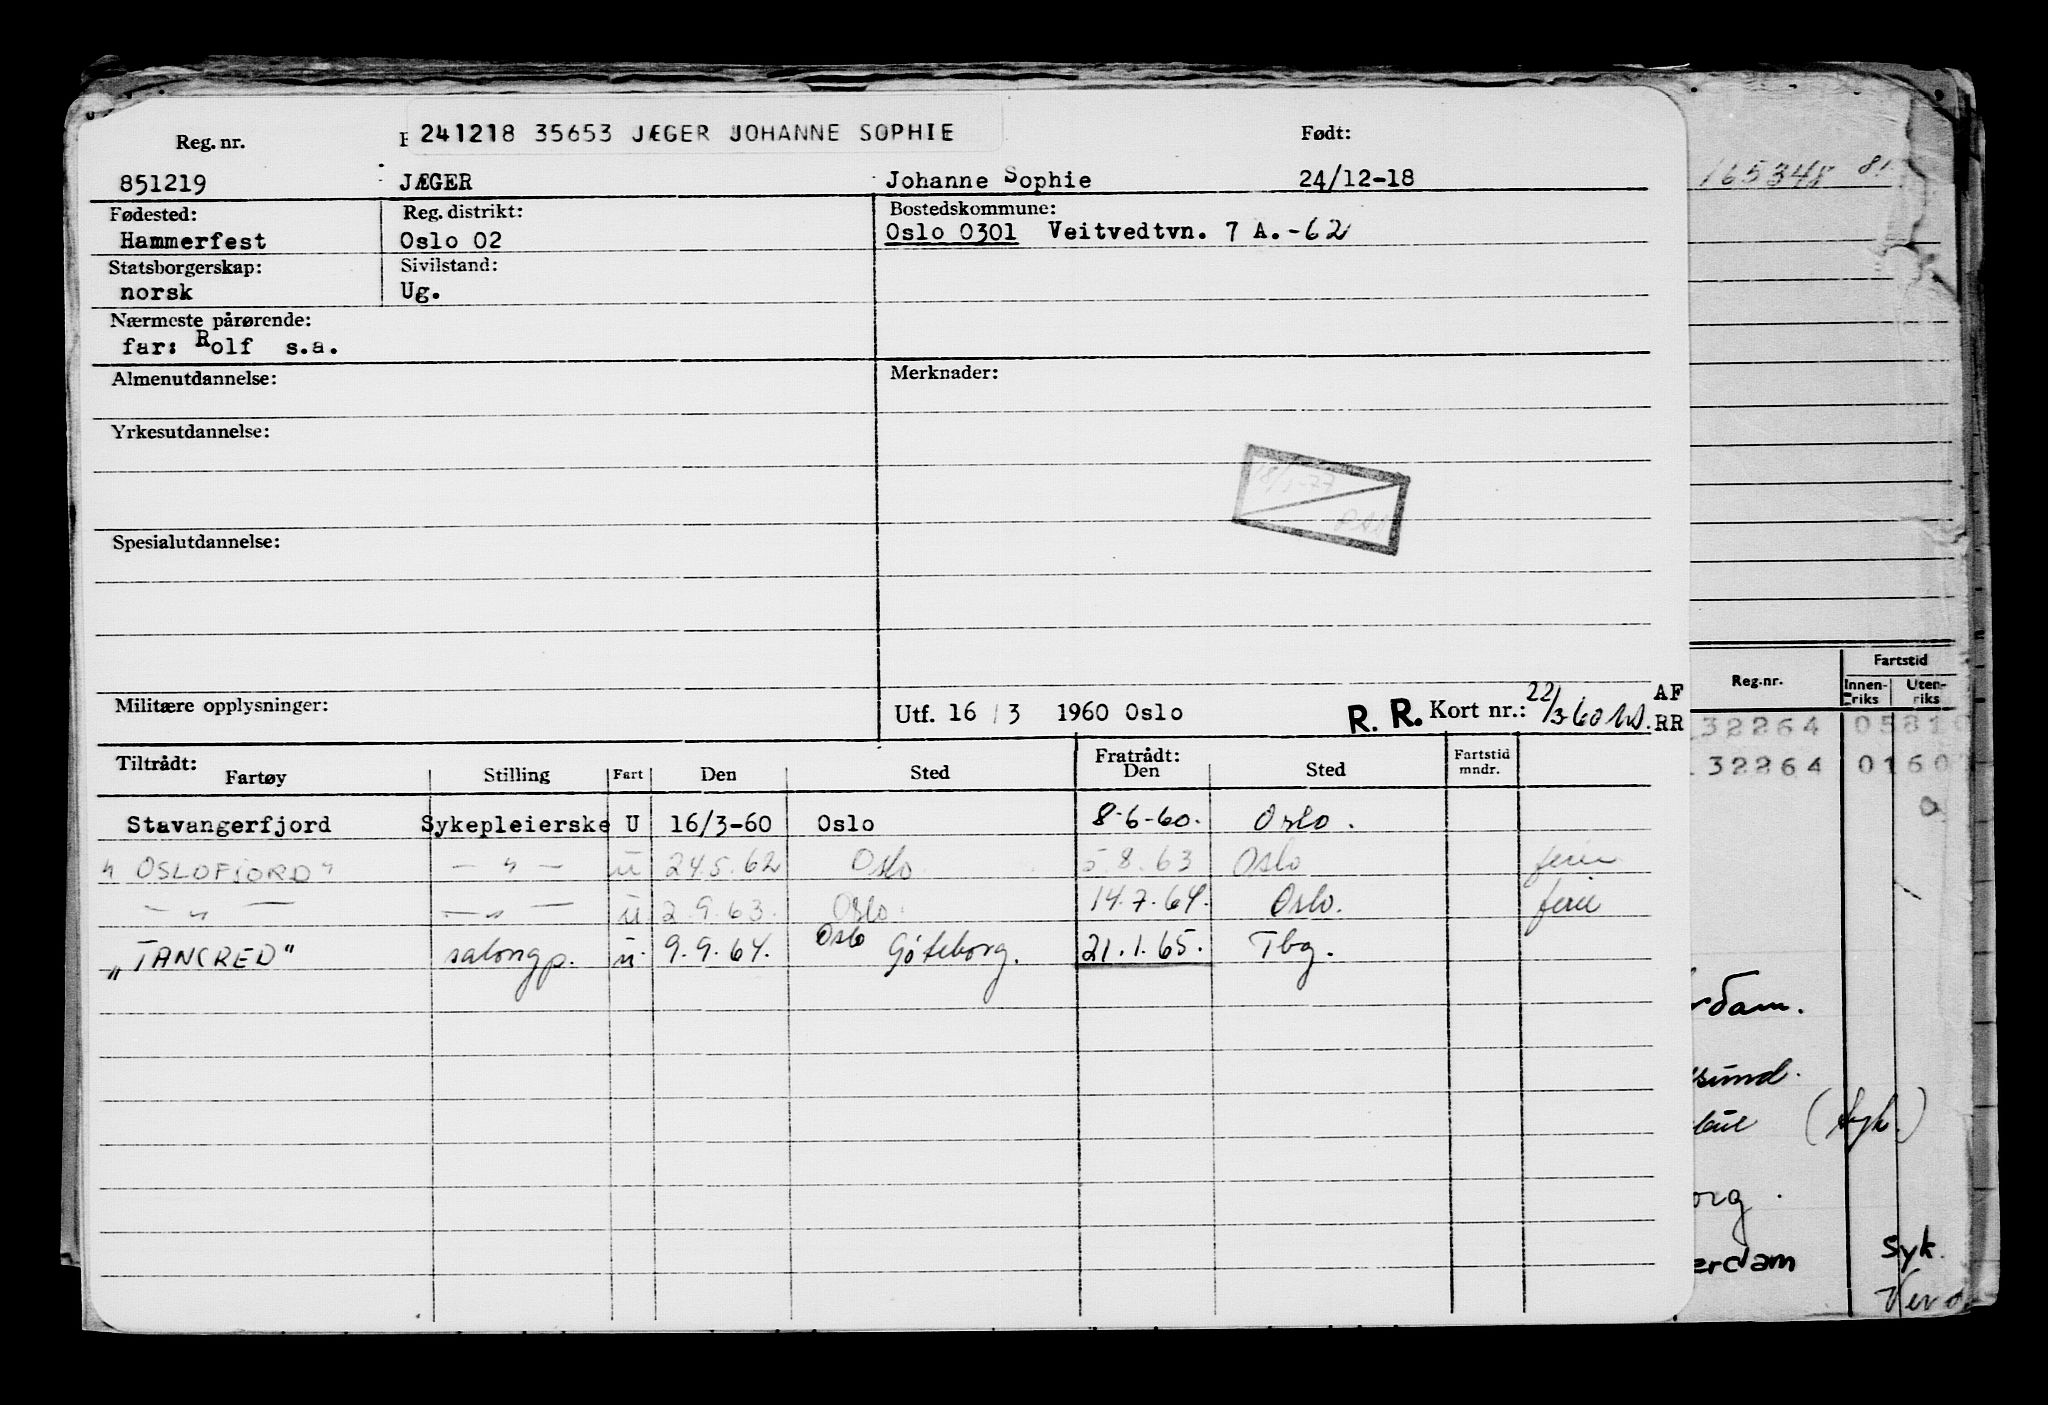 241218 35653 JÆGER JOHANNE SOPHIE
Reg. nr. Født:
851219 JÆGER Johanne Sophie 24/12-18
Fødested: Reg. distrikt: Bostedskommune:
Hammerfest Oslo 02 Oslo 0301 Veitvedtvn. 7 A.-62
Statsborgerskap: Sivilstand:
norsk Ug.
Nærmeste pårørende:
far: Rolf s.a.
Almenutdannelse: Merknader:
Yrkesutdannelse:
Spesialutdannelse:
Militære opplysninger: Utf. 16 / 3 1960 Oslo R. R. Kort nr.: 22/3-60 AF RR
Tiltrådt: Fratrådt:
Fartøy Stilling Fart Den Sted Den Sted Fartstid mndr.
Stavangerfjord Sykepleierske U 16/3-60 Oslo 8-6-60. Oslo.
" OSLOFJORD" — " — u 24.5.62 Oslo 5.8.63 Oslo ferie
— " — — " — u. 2.9.63. Oslo. 14.7.64. Oslo. ferie
"TANCRED" salongp. u. 9.9.64. Oslo Göteborg. 21.1.65. Tbg.
Reg.nr. Fartstid
Innenriks Utenriks
32264
32264
rdam.
sund.
(syk.)
org.
erdam Syk.